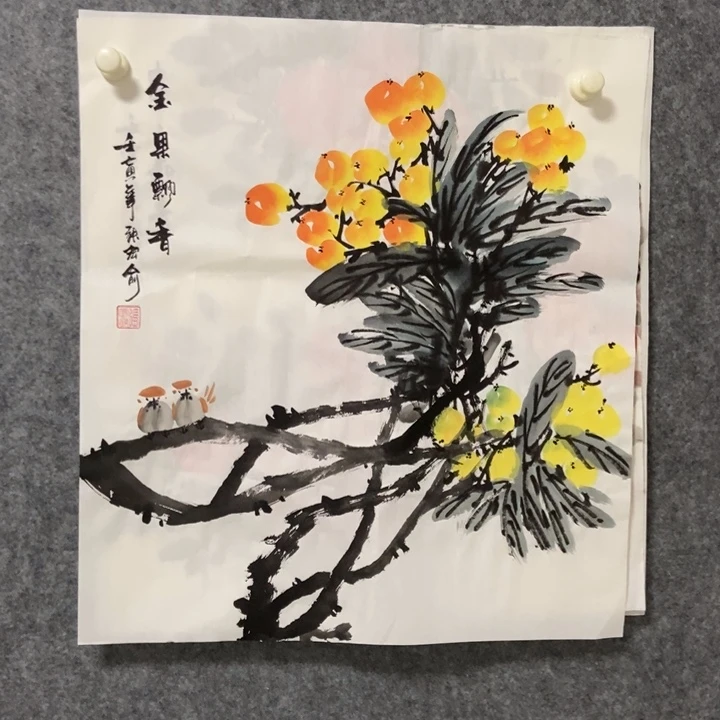 金果飘香
壬寅年张宏俞